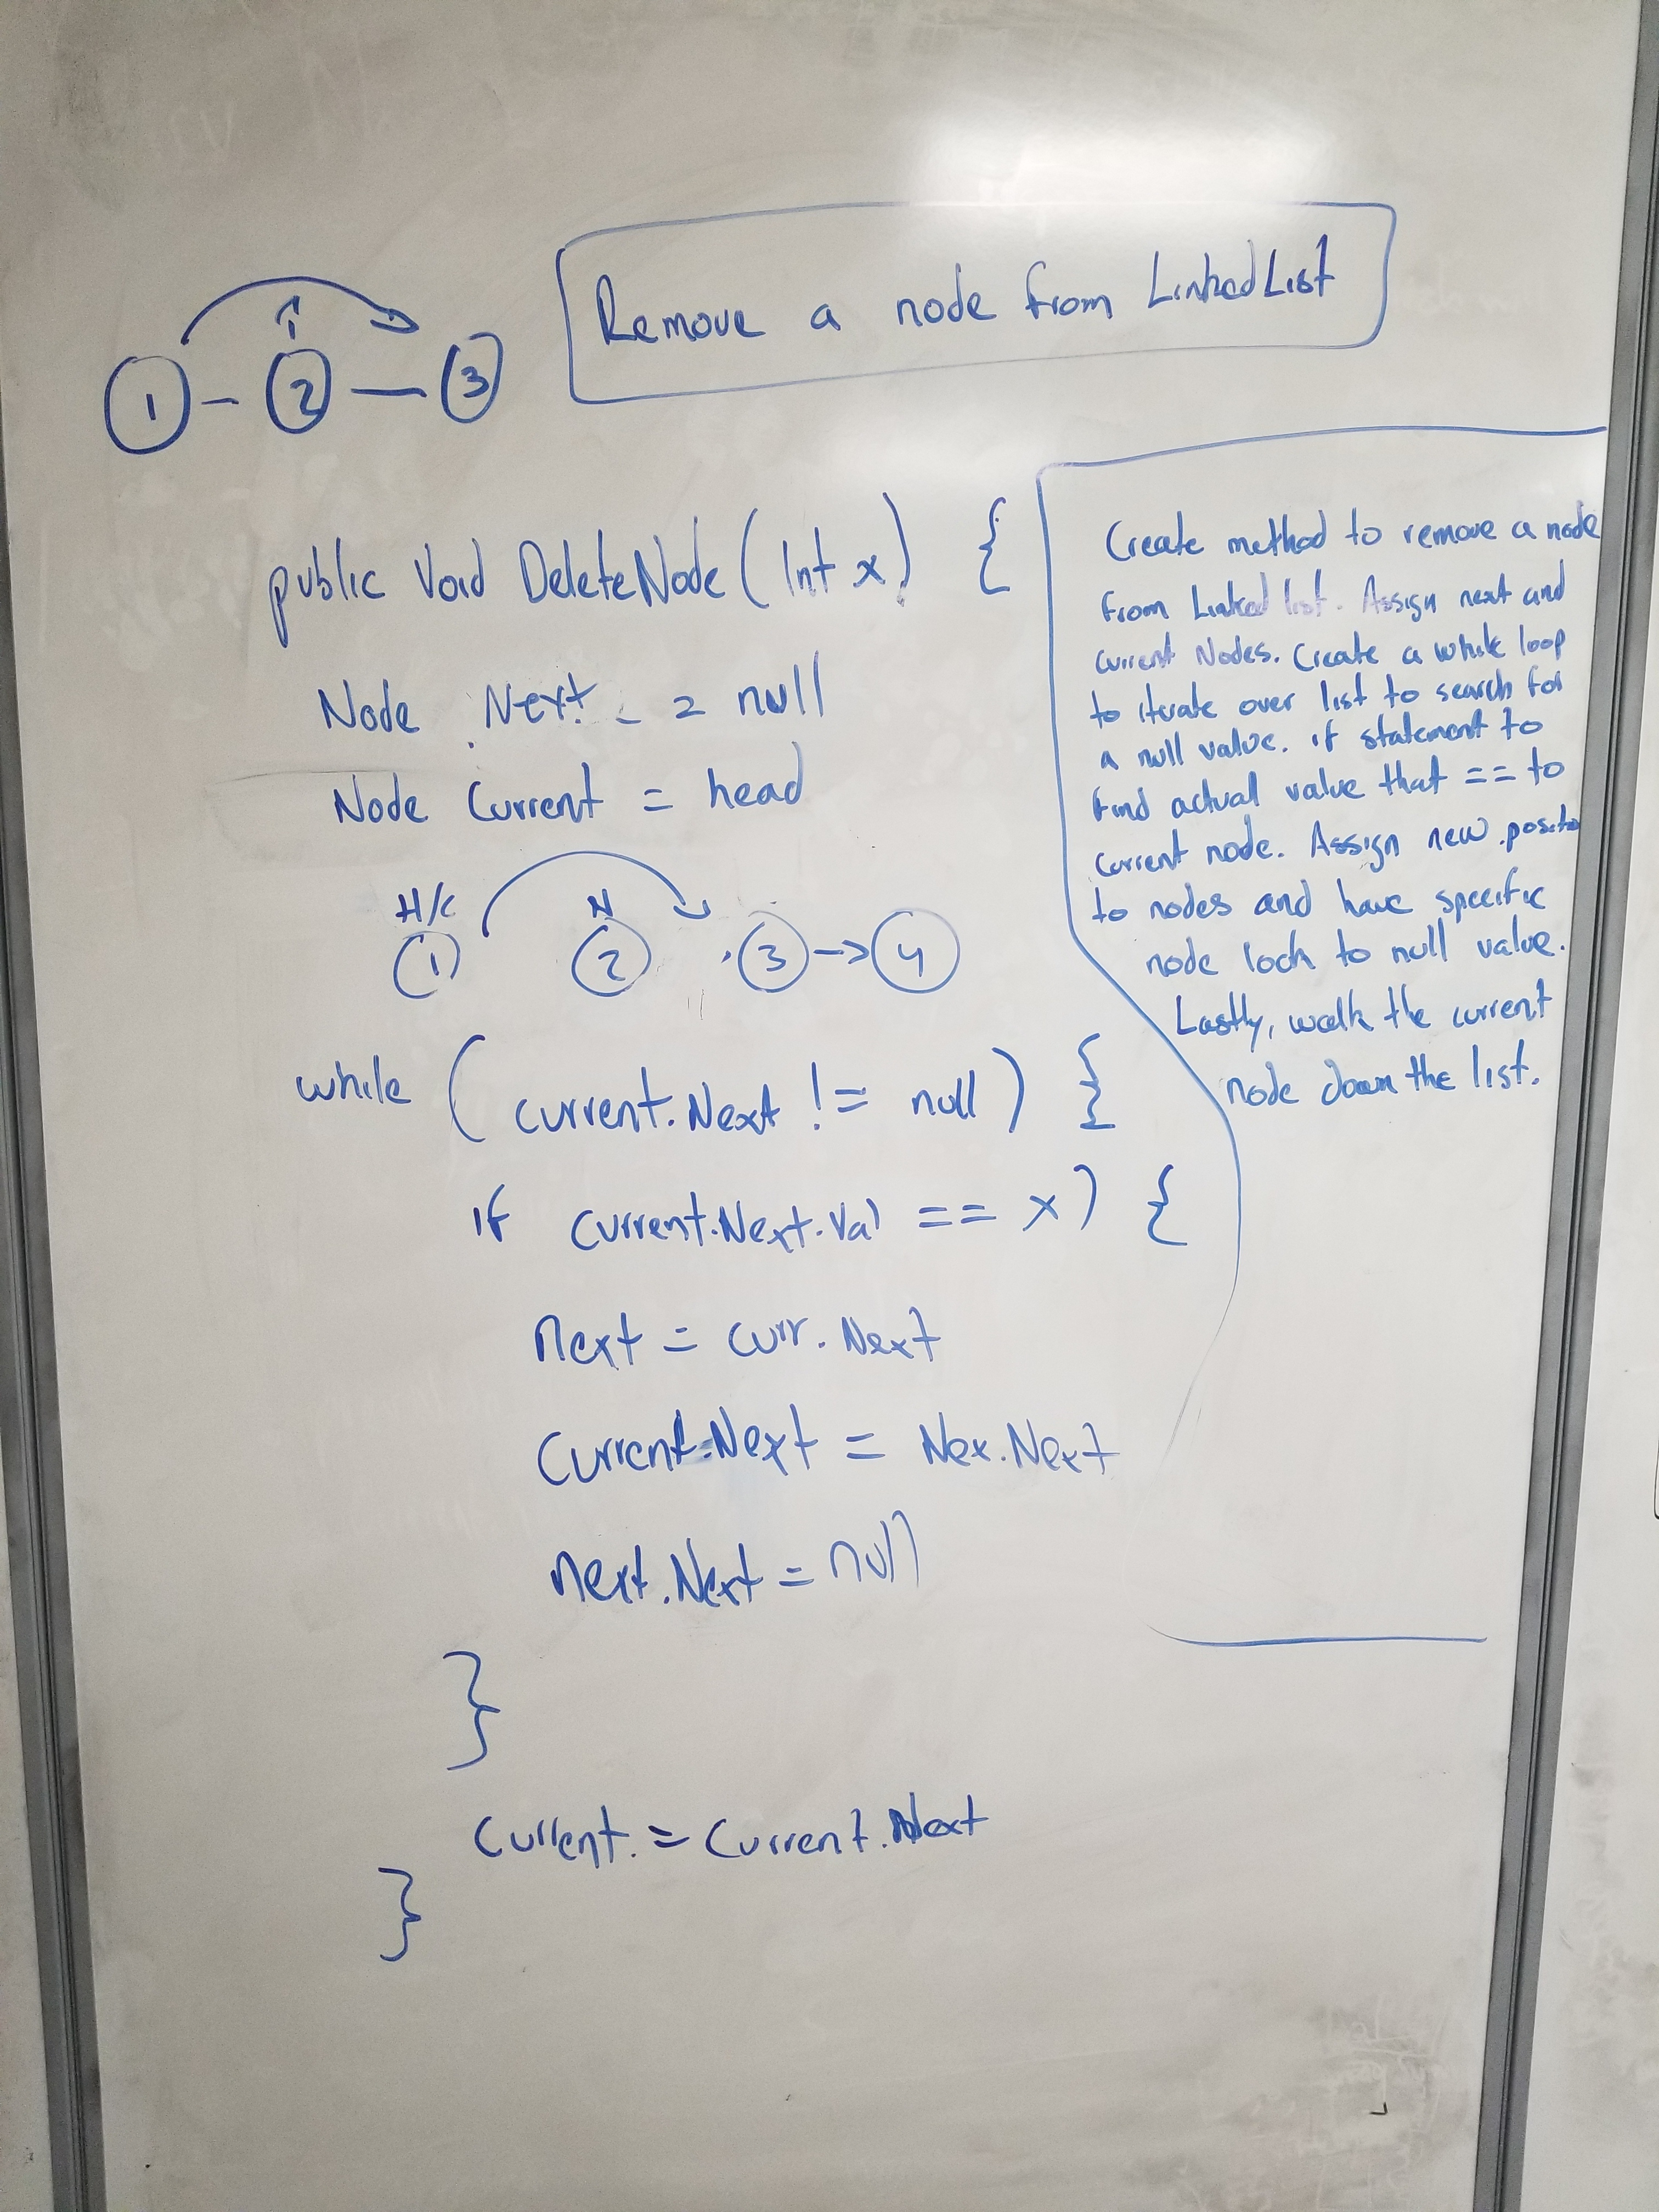 Remove a node from LinkedList
1 - 2 — 3
public Void DeleteNode (Int x) {
Node Next = null
Node Current = head
H/C N
1 2 3 → 4
while (current.Next != null) {
if current.Next.Val == x) {
next = curr.Next
Current.Next = Nex.Next
next.Next = null
}
Current = Current.Next
}
Create method to remove a node
from Linked list. Assign next and
current Nodes. Create a while loop
to iterate over list to search for
a null value. if statement to
find actual value that == to
current node. Assign new
to nodes and have specific
node look to null value.
Lastly, walk the current
node down the list.